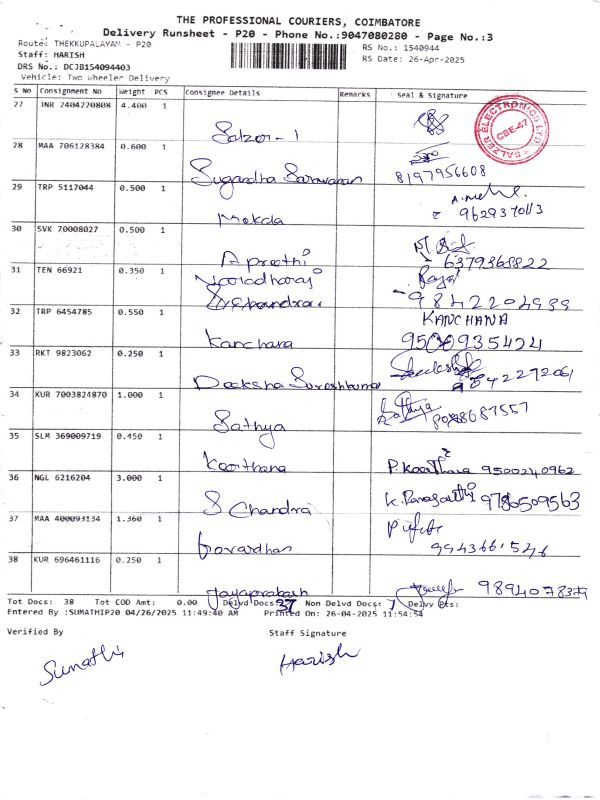 THE PROFESSIONAL COURIERS, COIMBATORE
Delivery Runsheet - P20 - Phone No.:9047080280 - Page No.:3
Route: THEKKUPALAYAM - P20
Staff: HARISH
DRS No.: DCJB154094403
Vehicle: Two Wheeler Delivery
RS No.: 1540944
RS Date: 26-Apr-2025
S No Consignment No Weight PCS Consignee Details Remarks Seal & Signature
27 JNR 2404270808 4.400 1 Salzor-1
SALZER ELECTRONICS LTD CBE-47
28 MAA 706128384 0.600 1 Sugandha Saravanan 8197956608
29 TRP 5117044 0.500 1 Mekda
30 SVK 70008027 0.500 1 A preethi 6379368822
31 TEN 66921 0.350 1 Varadharaj
32 TRP 6454785 0.550 1 Kanchana KANCHANA 9500935424
33 RKT 9823062 0.250 1 Deeksha Sureshkumar
34 KUR 7003824870 1.000 1 Sathya Sathya
35 SLM 369009719 0.450 1 Keerthana P. Keerthana 9500240962
36 NGL 6216204 3.000 1 S Chandra 9786509563
37 MAA 400093134 1.360 1 Govardhan
38 KUR 696461116 0.250 1 Jayaprakash
Tot Docs: 38 Tot COD Amt: 0.00 Delvd Docs: 37 Non Delvd Docs: 1 Delvy Pts:
Entered By :SUMATHIP20 04/26/2025 11:49:40 AM Printed On: 26-04-2025 11:54:54
Verified By Staff Signature
Sumathi Harish